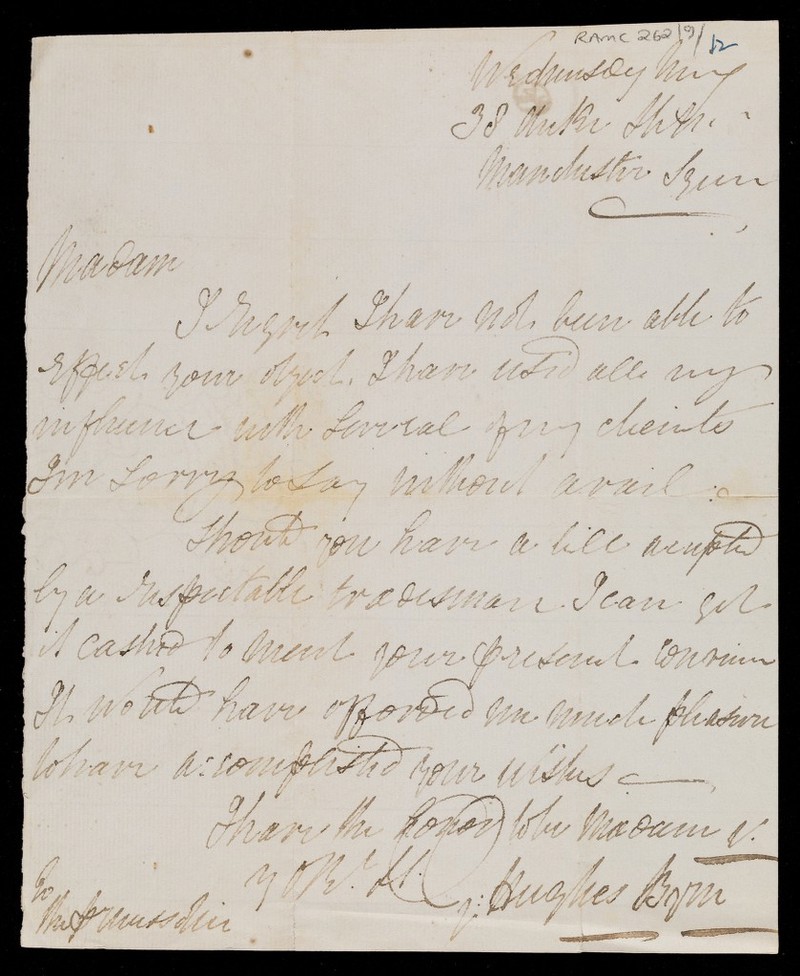 RAMC 262/9/12
Wednesday
38 Duke Street
Manchester Square
Madam
I Regret I have not been able to
Effect your object. I have used all my
influence with several of my clients
I'm sorry to say without avail
Should you have a bill accepted
by a respectable tradesman I can get
it cashed to meet your present
It would have afforded me much pleasure
to have accomplished your wishes
I have the honor to be Madam
y Ob. St.
Hughes Byrn
To